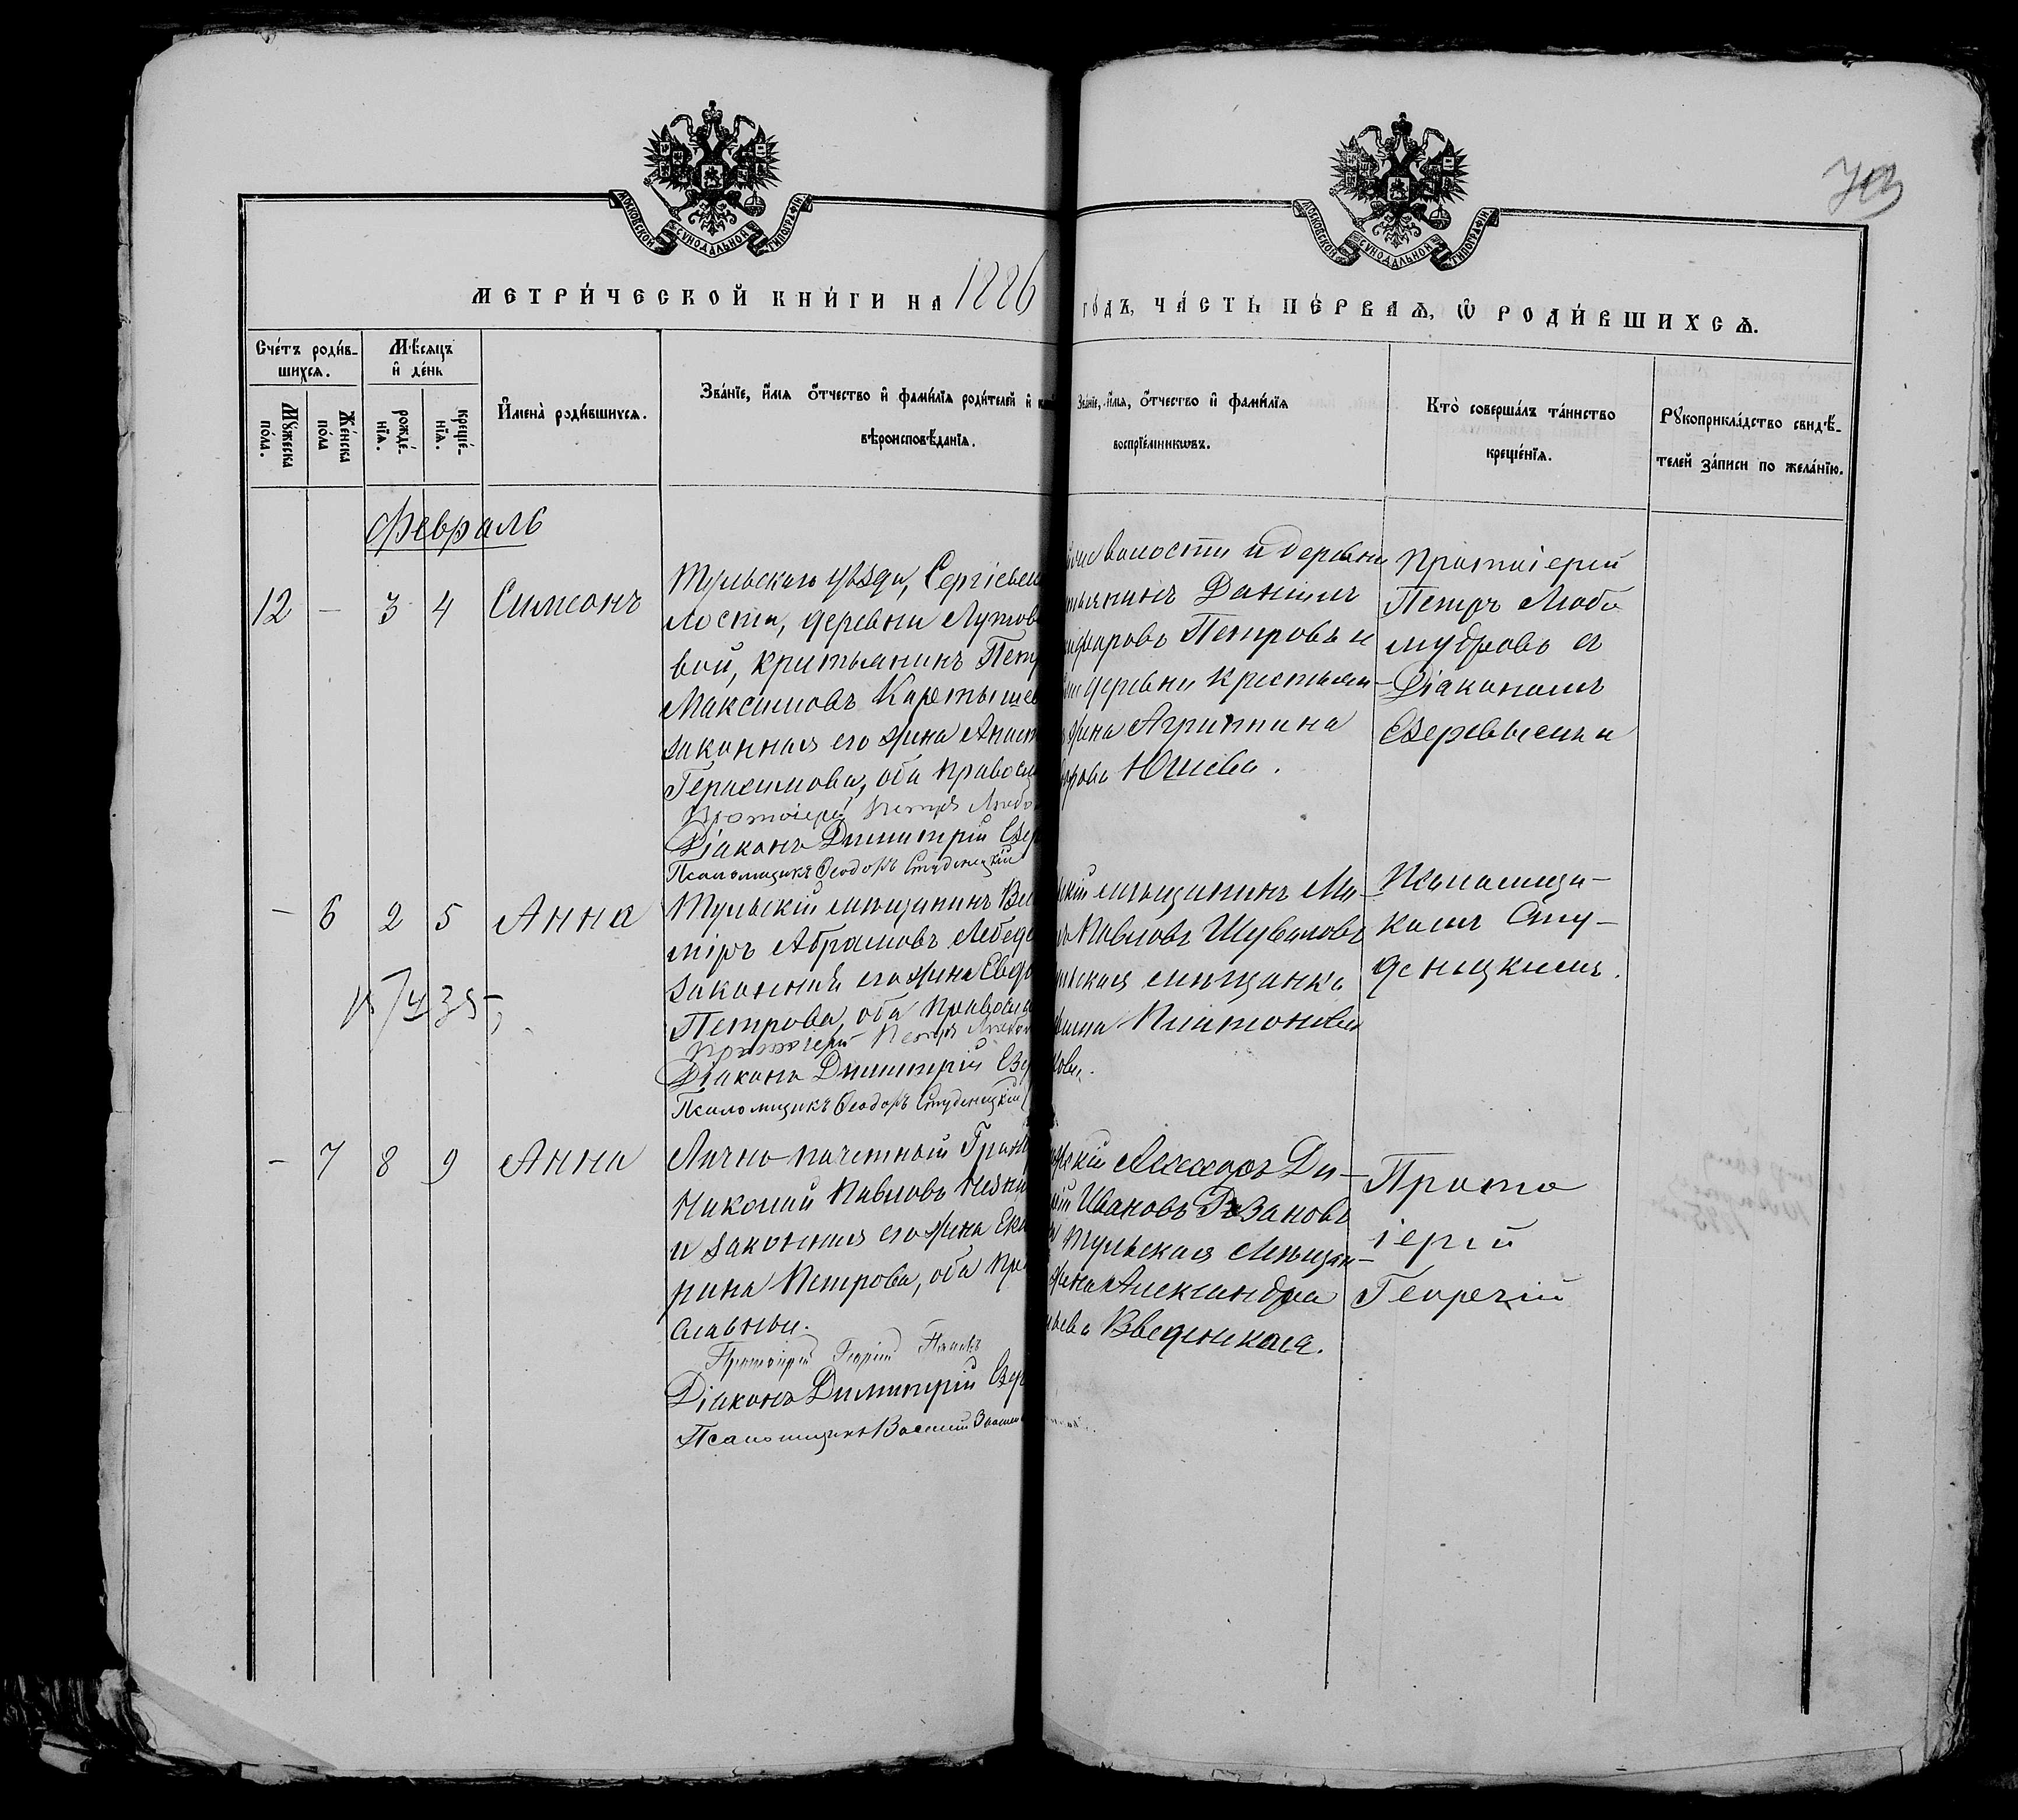 703
МОСКОВСКОЙ СѴНОДАЛЬНОЙ ТИПОГРАФІИ
МОСКОВСКОЙ СѴНОДАЛЬНОЙ ТИПОГРАФІИ
МЕТРИ́ЧЕСКОЙ КНИ́ГИ НА 1886
ГО́ДЪ, ЧА́СТЬ ПЕ́РВАѦ, Ѡ РОДИ́ВШИХСѦ.
Сче́тъ роди́в-
шихсѧ.
Мѣ́сяцъ
и҆ де́нь
Мꙋ́жеска
по́ла.
Же́нска
по́ла
рожде́-
нїѧ.
креще́-
нїѧ.
И҆мена̀ роди́вшихсѧ.
Зва́нїе, и҆́мѧ ѻ҆́тчество и҆ фами́лїѧ роди́телей и҆
вѣроисповѣ́данїѧ.
Зва́нїе, и҆́мѧ, ѻ҆́тчество и҆ фами́лїѧ
воспрїе́мникѡвъ.
Кто̀ соверша́лъ та́инство
креще́нїѧ.
Рꙋкоприкла́дство свидѣ́-
телей за́писи по жела́нїю.
Февраль
12 — 3 4 Симеонъ
Тульскаго уѣзда, Сергіевск
лости, деревни Лутов
вой, крестьянинъ Петр
Максимовъ Каретыше
законная его жена Анаст
Герасимова, оба правосл
Протоіерей Петръ Любо
Діаконъ Димитрій Све
Псаломщикъ Ѳеодоръ Студенецкій
волости и деревни
тьянинъ Даніилъ
Петровъ и
деревни крестьян-
жена Агрипина
Юшева.
Протоіерей
Петръ Любо
мудровъ съ
Діакономъ
— 6 2 5 Анна
Тульскій мѣщанинъ Вла
міръ Абрамовъ Лебеде
законная его жена Евдо
Петрова, оба правосла
Протоіерей Петръ Любом
Діаконъ Димитрій
Псаломщикъ Ѳеодоръ Студенецкій
скій мѣщанинъ Ми-
Павловъ Шуваловъ
льская мѣщанка
Платонова
ова.
Псаломщи-
комъ Сту-
денецкимъ.
— 7 8 9 Анна
Лично-почетный Граж
Николай Павловъ
и законная его жена Ека
рина Петрова, оба пра
славные.
Протоіерей Георгій Пановъ
Діаконъ Димитрій
Псаломщикъ Василій
Ивановъ Розановъ
Тульская мѣщан-
жена Александра
ьева Введенская.
Прото
іерей
Георгій